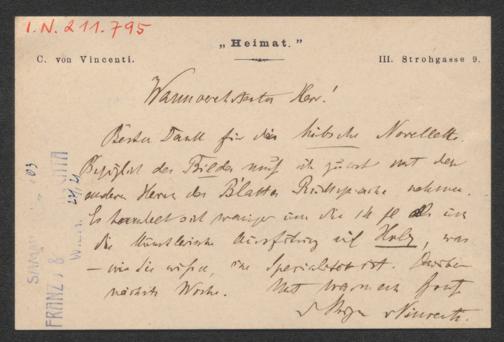 I.N. 211.795
„Heimat."
C. von Vincenti.
III. Strohgasse 9.
Wannverehrtester Herr!
Besten Dank für die hübsche Novellette.
Bezüglich des Bildes muß ich zuerst mit den
anderen Herren des Blattes Rücksprache nehmen.
Es handelt sich weniger um die 14 fl als um
die künstlerische Ausführung auf Holz, was
– wie Sie wissen, eine Specialität ist. Darüber
nächste Woche. Mit warmem Gruß
v Vincenti